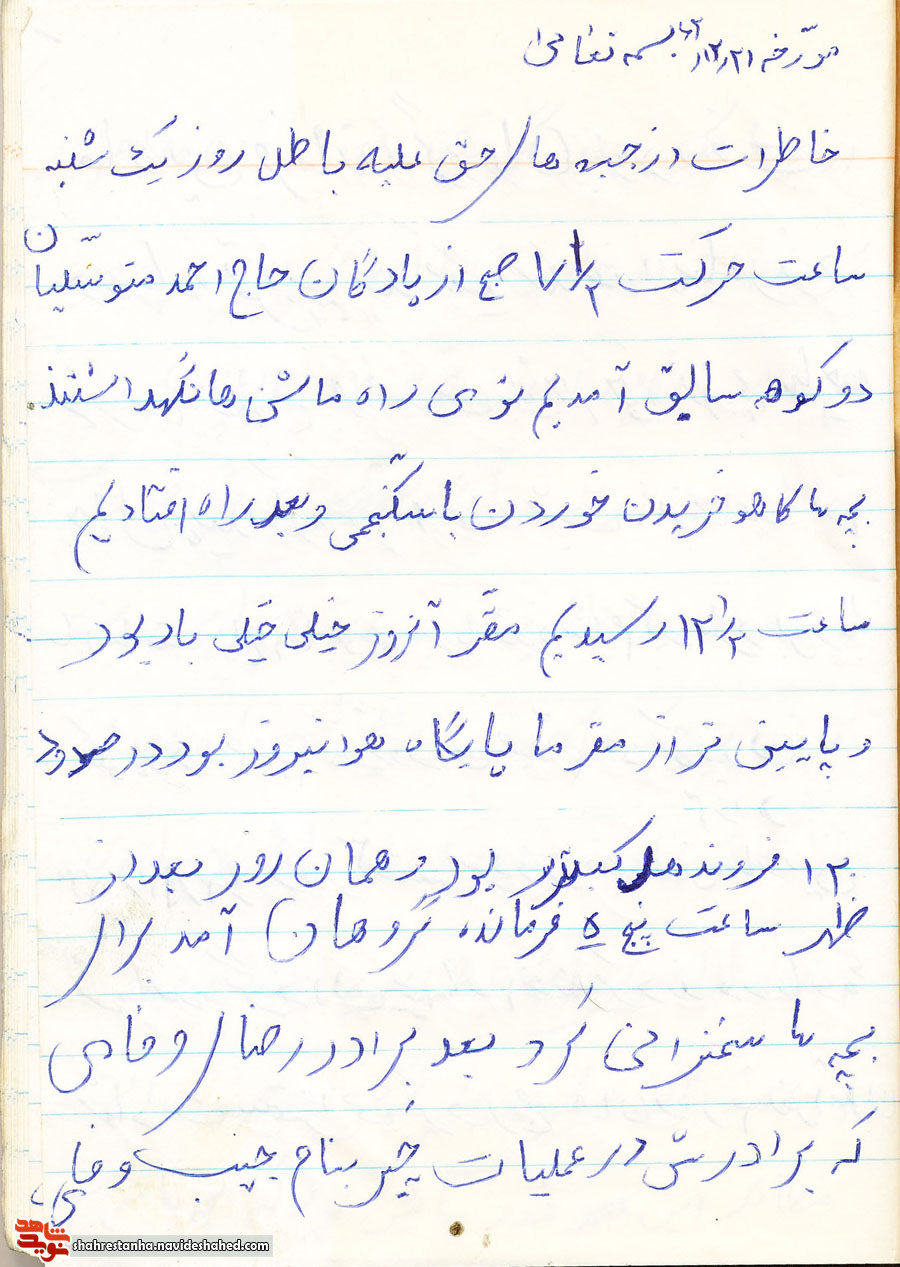 مورخه ۶۲/۱۲/۲۱ بسمه تعالی
خاطرات از جبهه های حق علیه باطل روز یک شنبه
ساعت حرکت ۷/۱/۲ صبح از پادگان حاج احمد متوسلیان
دو کوهه سابق آمدیم توی راه ماشن ها نگهداشتند
بچه ها کاهو خریدن خوردن با سکنجمی و بعد راه افتادیم
ساعت ۱۲/۱/۲ رسیدیم مقر آنروز خیلی خیلی باد بود
و پایین تر از مقر ما پایگاه هوانیروز بود در حدود
۱۲ فروند هلی کبتر بود و همان روز بعد از
ظهر ساعت پنج ۵ فرمانده گروهان آمد برای
بچه ها سخنرانی کرد بعد برادر رضای وفای
که برادرش در عملیات خیبر بنام وفایی
شاهد نوید
shahrestanha.navideshahed.com